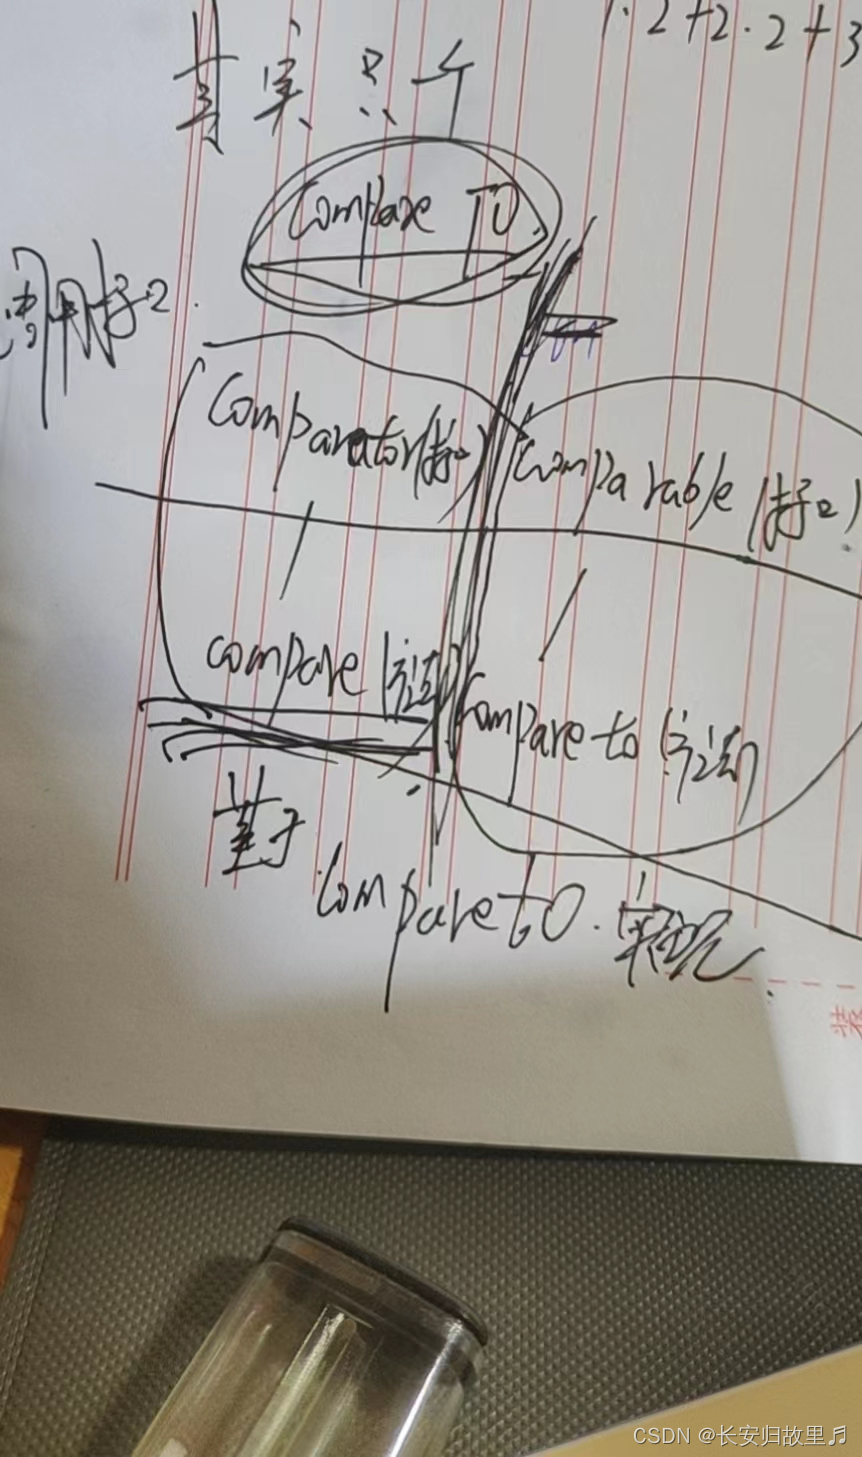 1.2+2.2+3
其实只个
Compare TO
调用接口.
Comparator(接口)
Comparable(接口)
compare(方法)
compare to(方法)
基于
Compare to.实现
装
CSDN @长安归故里♬